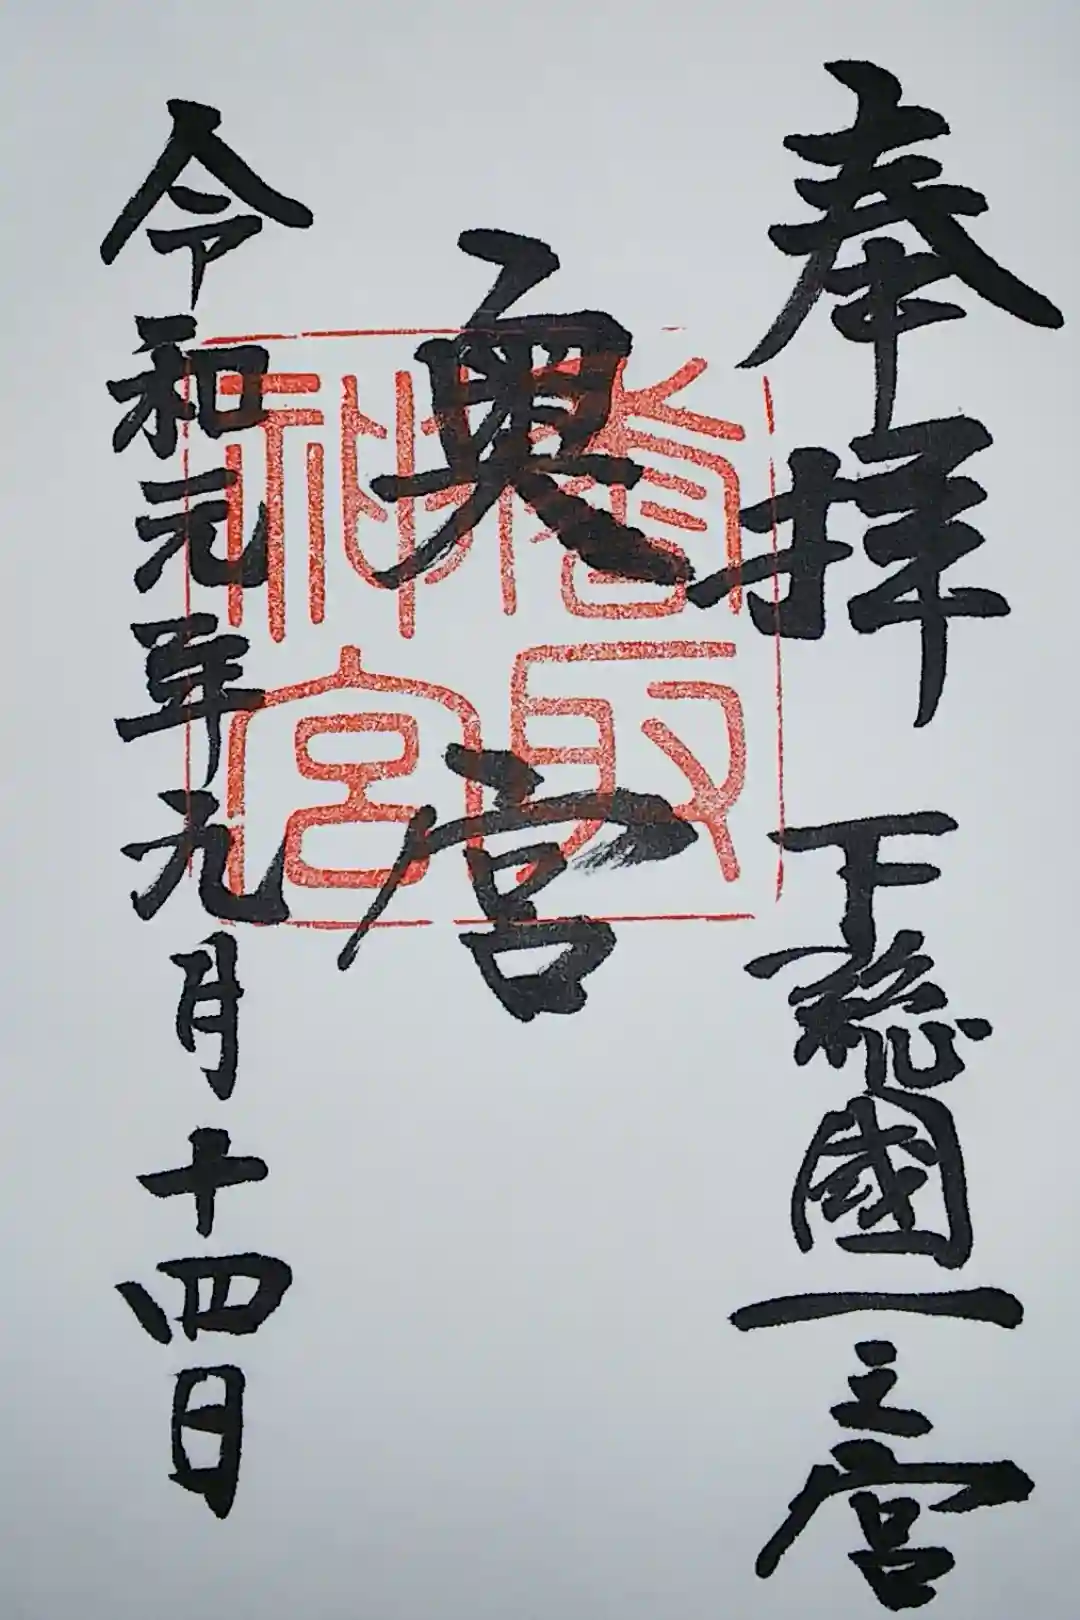 奉拝 下総國一之宮
奥宮
香取神宮
令和元年九月十四日